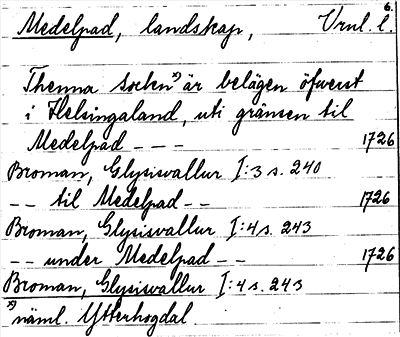 6.
Medelpad, landskap, Vrul. l.
Thenna sockn x) är belägen öfwerst
i Helsingaland, uti gränsen til
Medelpad - - - 1726
Broman, Glysisvallur I:3 s. 240
- - til Medelpad - - 1726
Broman, Glysisvallur I:4 s. 243
- - under Medelpad - - 1726
Broman, Glysisvallur I:4 s. 243
x) näml. Ytterhogdal